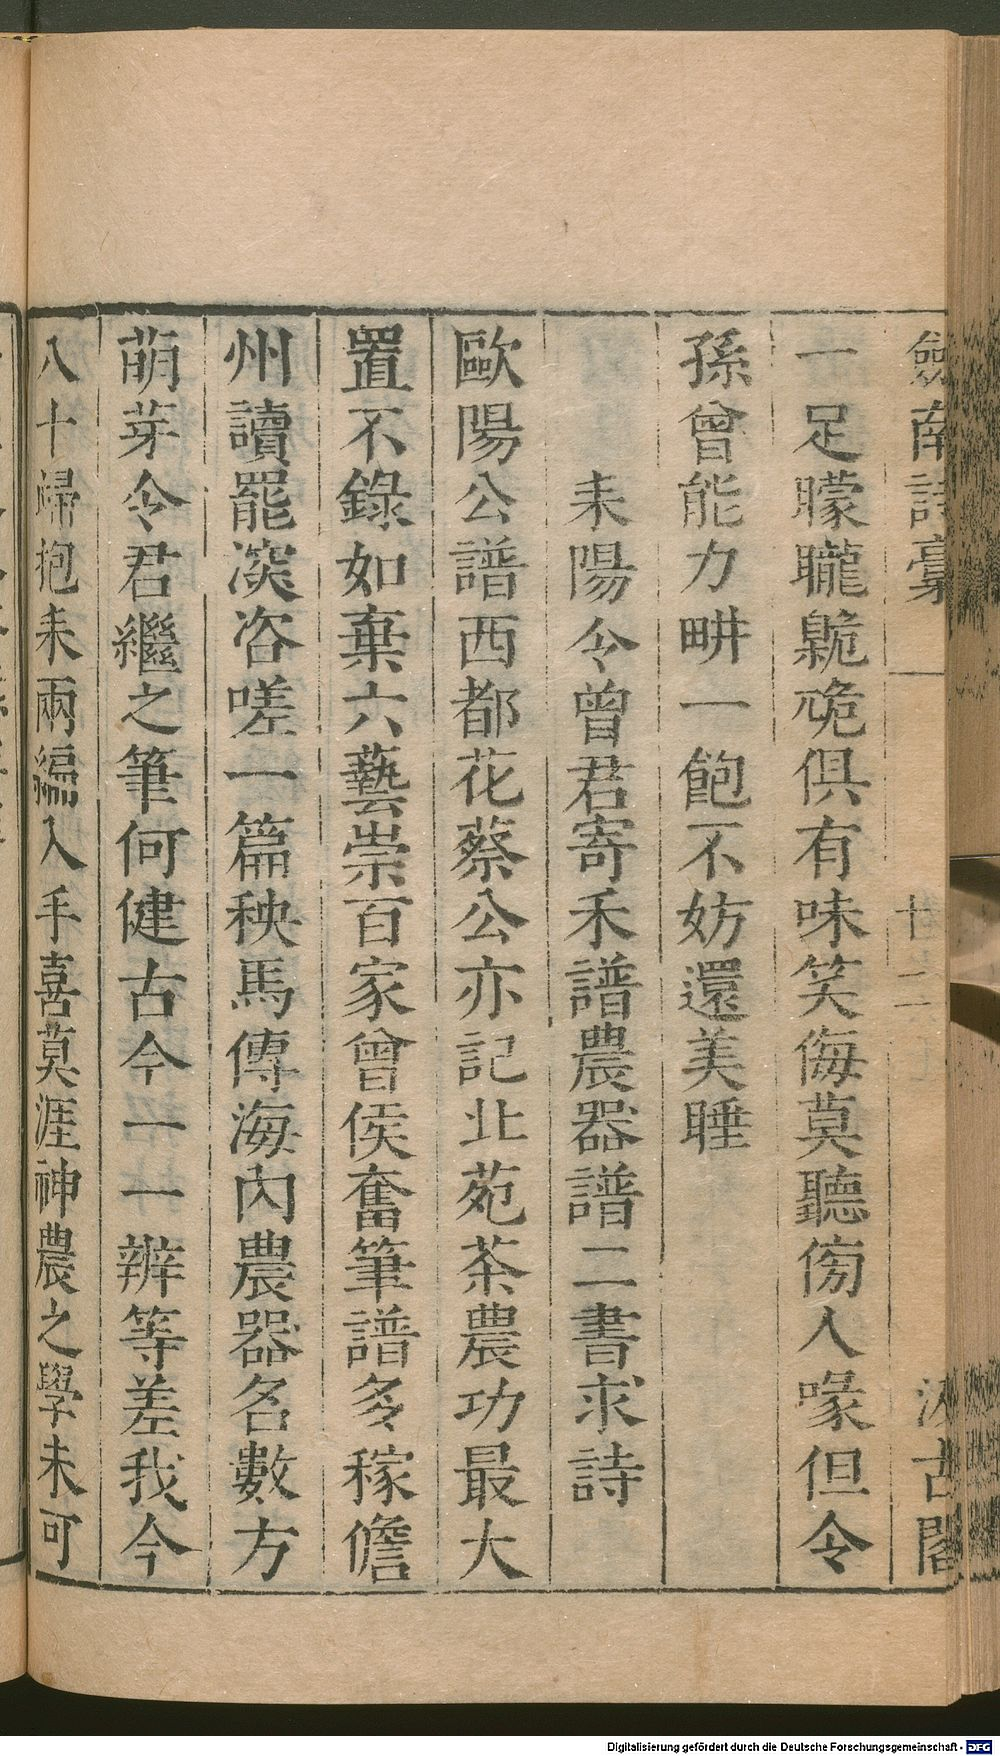 劍南詩稾 十二 汲古閣
一足矇矓臲卼俱有味笑侮莫聽傍人喙但令
孫曾能力畊一飽不妨還美睡
耒陽令曾君寄禾譜農器譜二書求詩
歐陽公譜西都花蔡公亦記北苑茶農功最大
置不錄如棄六藝崇百家曾侯奮筆譜多稼儋
州讀罷深咨嗟一篇秧馬傳海內農器名數方
萌芽令君繼之筆何健古今一一辨等差我今
八十歸抱耒兩編入手喜莫涯神農之學未可
Digitalisierung gefördert durch die Deutsche Forschungsgemeinschaft - DFG